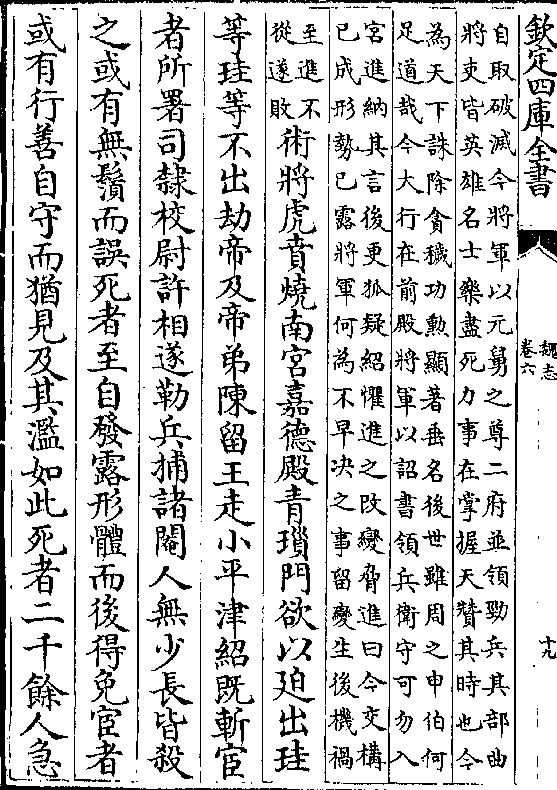 欽定四庫全書
魏志
卷六
十九
自取破滅今將軍以元舅之尊二府並領勁兵其部曲
將吏皆英雄名士樂盡死力事在掌握天贊其時也今
為天下誅除貪穢功勲顯著垂名後世雖周之申伯何
足道哉今大行在前殿將軍以詔書領兵衛守可勿入
宮進納其言後更狐疑紹懼進之改變脅進曰今交構
已成形勢已露將軍何為不早決之事留變生後機禍
至進不
從遂敗
術將虎賁燒南宮嘉德殿青瑣門欲以廹出珪
等珪等不出劫帝及帝弟陳留王走小平津紹既斬宦
者所署司隸校尉許相遂勒兵捕諸閹人無少長皆殺
之或有無鬚而誤死者至自發露形體而後得免宦者
或有行善自守而猶見及其濫如此死者二千餘人急